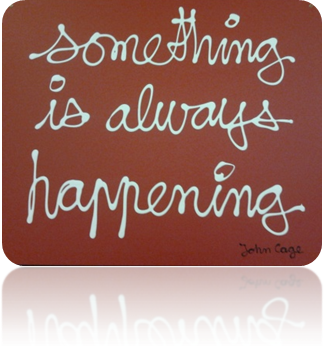 something
is always
happening
John Cage